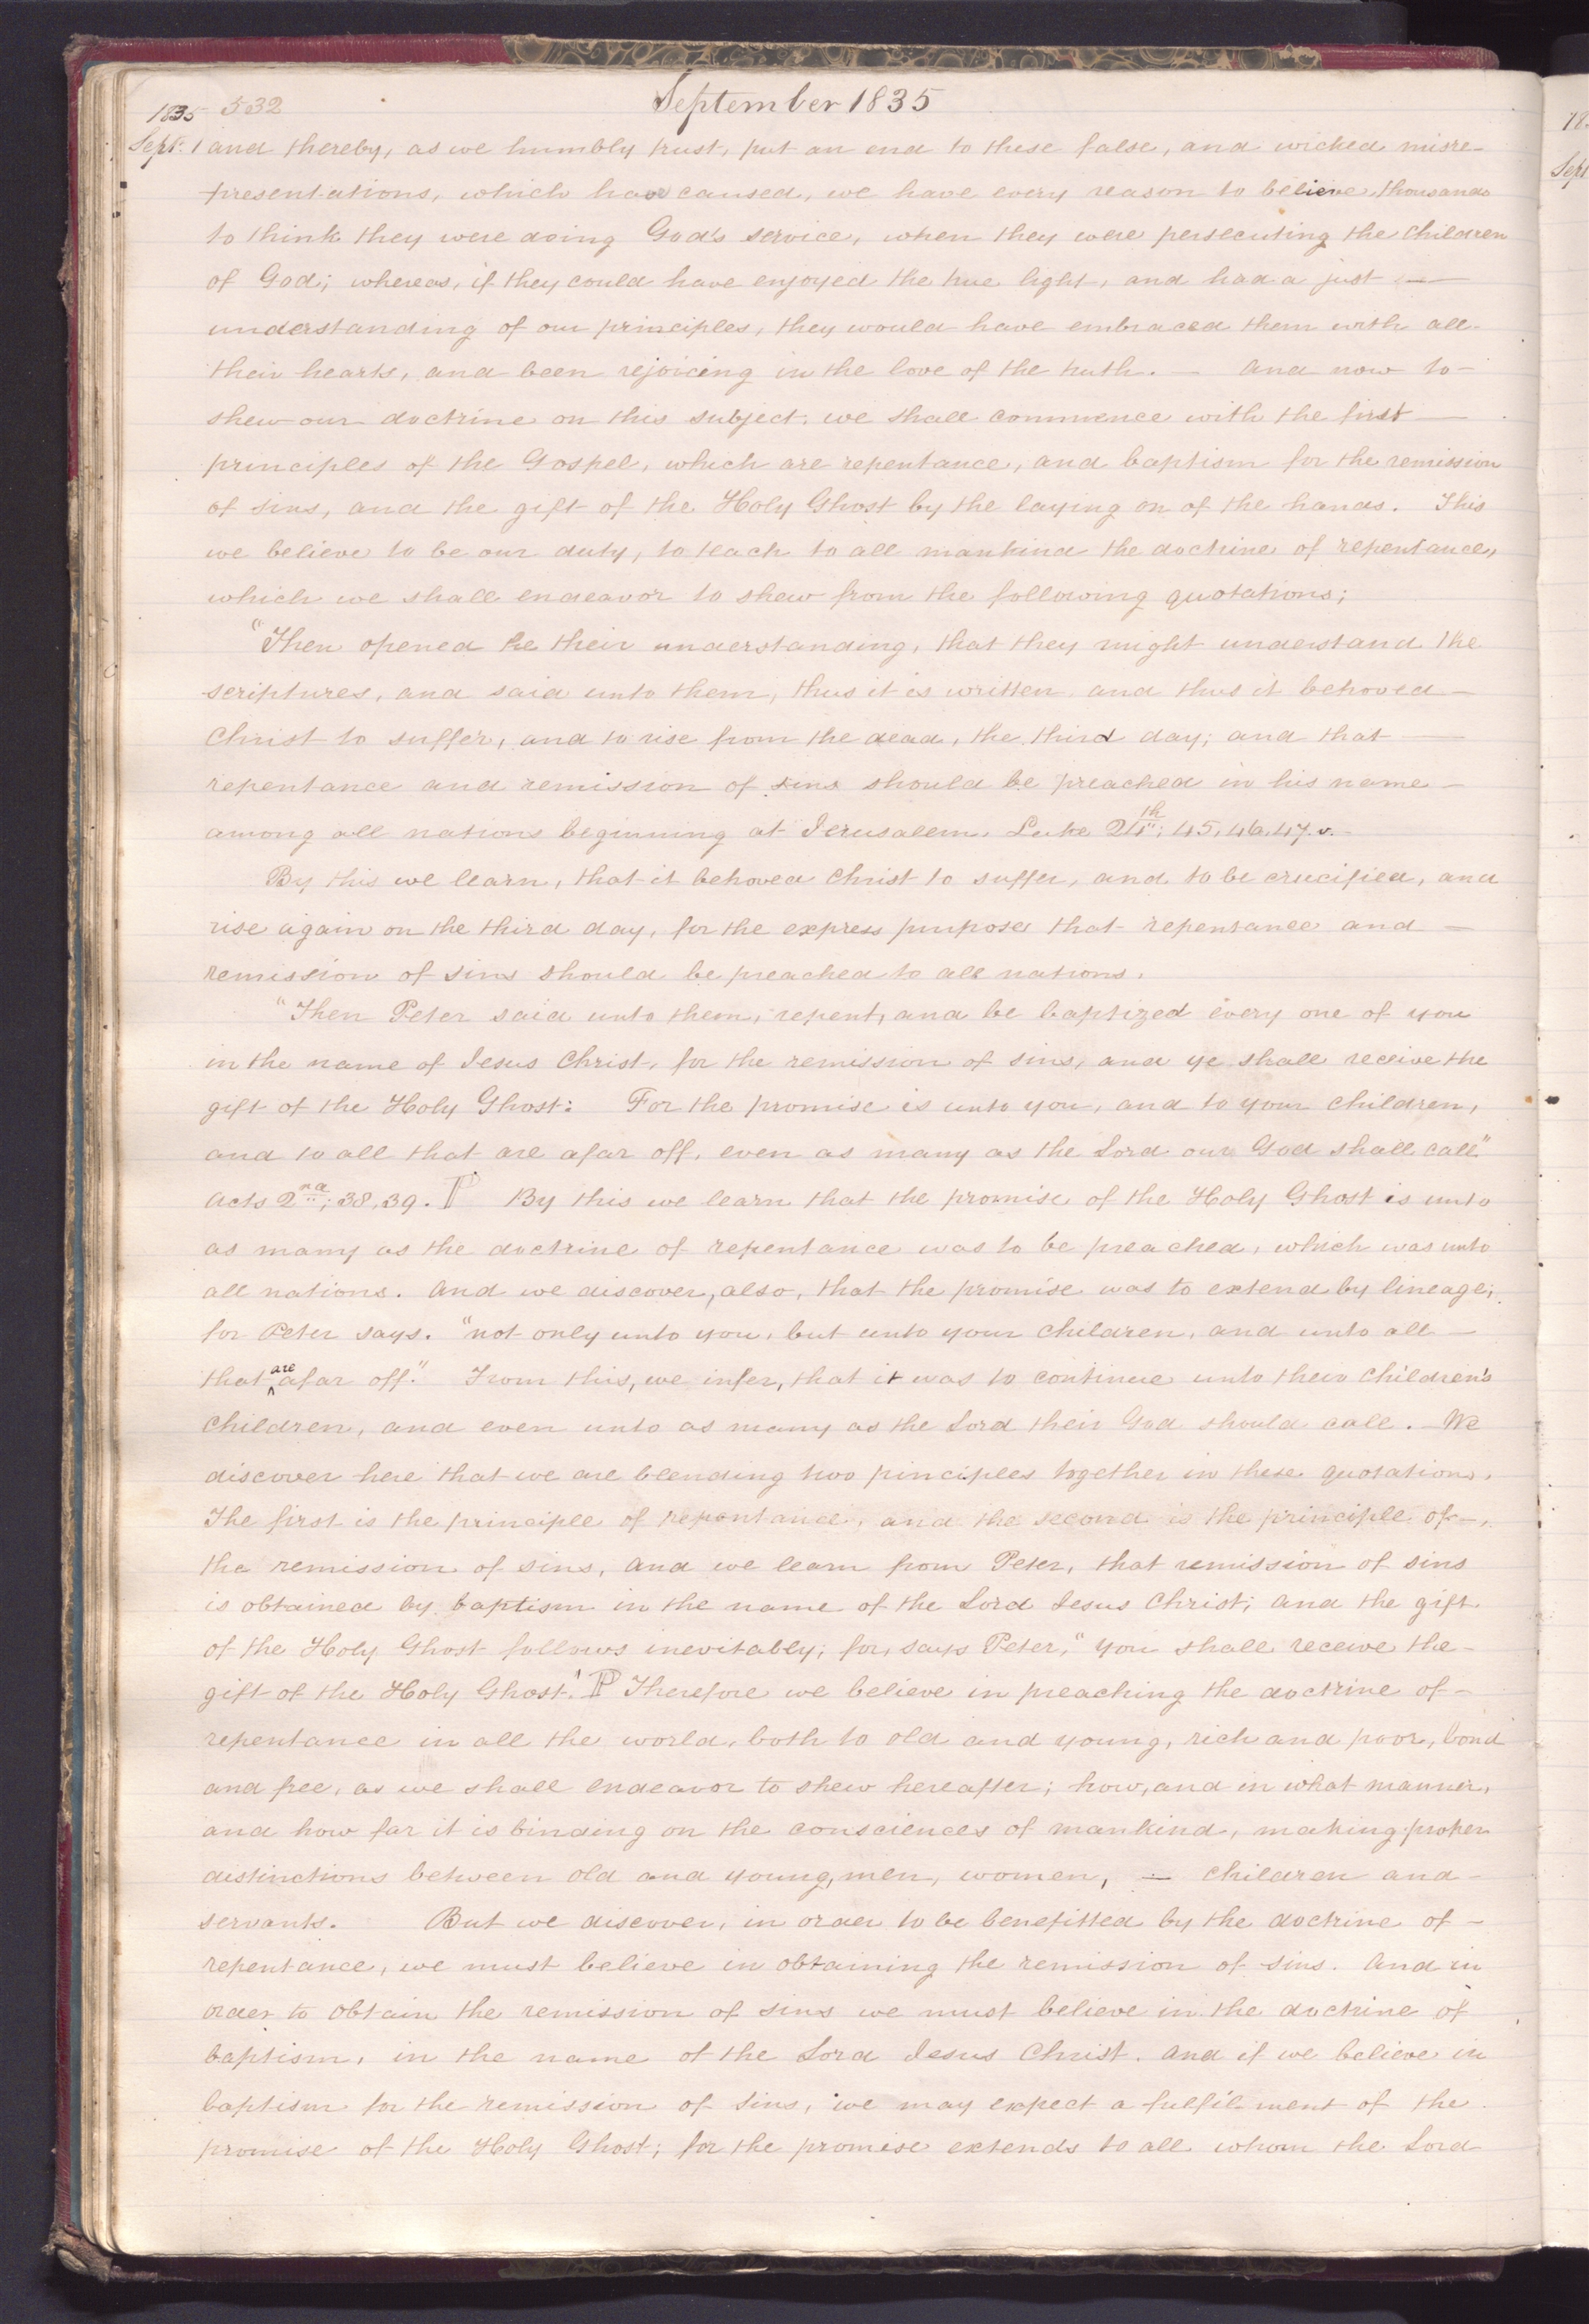 1835 532 September 1835
Sept. 1 and thereby, as we humbly trust, put an end to these false, and wicked misre-
presentations, which have caused, we have every reason to believe, thousands
to think they were doing God's service, when they were persecuting the children
of God; whereas, if they could have enjoyed the true light, and had a just —
understanding of our principles, they would have embraced them with all-
their hearts, and been rejoicing in the love of the truth. — And now to-
shew our doctrine on this subject, we shall commence with the first —
principles of the Gospel, which are repentance, and baptism for the remission
of sins, and the gift of the Holy Ghost by the laying on of the hands. This
we believe to be our duty, to teach to all mankind the doctrine of repentance,
which we shall endeavor to shew from the following quotations;
"Then opened he their understanding, that they might understand the
scriptures, and said unto them, thus it is written, and thus it behoved —
Christ to suffer, and to rise from the dead, the third day; and that —
repentance and remission of sins should be preached in his name —
among all nations beginning at Jerusalem. Luke 24th; 45, 46, 47. v.-
By this we learn, that it behoved Christ to suffer, and to be crucified, and
rise again on the third day, for the express purpose that repentance and —
remission of sins should be preached to all nations.
"Then Peter said unto them, repent, and be baptized every one of you
in the name of Jesus Christ, for the remission of sins, and ye shall receive the
gift of the Holy Ghost: For the promise is unto you, and to your children,
and to all that are afar off, even as many as the Lord our God shall call"
Acts 2nd; 38, 39. P By this we learn that the promise of the Holy Ghost is unto
as many as the doctrine of repentance was to be preached, which was unto
all nations. And we discover, also, that the promise was to extend by lineage;
for Peter says. "not only unto you, but unto your children, and unto all —
that ^are afar off." From this, we infer, that it was to continue unto their children's
children, and even unto as many as the Lord their God should call. - We
discover here that we are blending two pinciples together in these quotations.
The first is the principle of repentance, and the second is the principle of -
the remission of sins, and we learn from Peter, that remission of sins
is obtained by baptism in the name of the Lord Jesus Christ; and the gift
of the Holy Ghost follows inevitably; for, says Peter, "you shall receive the-
gift of the Holy Ghost." P Therefore we believe in preaching the doctrine of-
repentance in all the world, both to old and young, rich and poor, bond
and free, as we shall endeavor to shew hereafter; how, and in what manner,
and how far it is binding on the consciences of mankind, making proper
distinctions between old and young, men, women, — children and -
servants. But we discover, in order to be benefitted by the doctrine of -
repentance, we must believe in obtaining the remission of sins. And in
order to obtain the remission of sins we must believe in the doctrine of
baptism, in the name of the Lord Jesus Christ. And if we believe in
baptism for the remission of sins, we may expect a fulfilment of the
promise of the Holy Ghost; for the promise extends to all whom the Lord
18
Sept